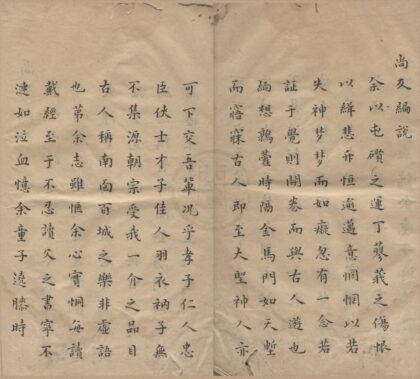 尚友編說
余以屯礩之運丁蓼莪之傷恨
以緝悲亦恒邁邁意惘惘以若
失神夢夢而如癡忽有一念若
証于覺則開卷而與古人遊也
緬想鶉藿時陽金馬門如天塹
而寤寐古人即至大聖神人亦
可下交吾輩況乎孝子仁人忠
臣俠士才子佳人羽衣衲子無
不集源朝宗受我一介之品目
古人稱南面百城之樂非虛語
也第余志雖愜余心實惘每讀
戴經至于不忍讀父之書寧不
漣如泣血憶余童子遶膝時